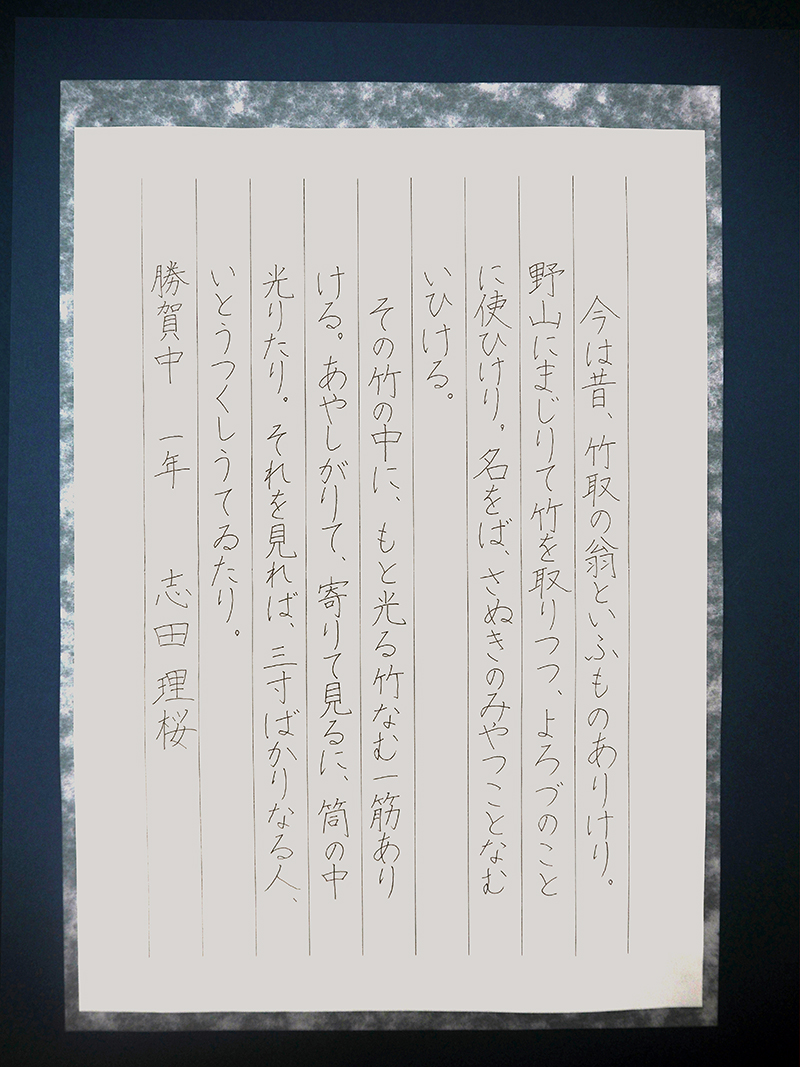 今は昔、竹取の翁といふものありけり。
野山にまじりて竹を取りつつ、よろづのこと
に使ひけり。名をば、さぬきのみやつことなむ
いひける。
その竹の中に、もと光る竹なむ一筋あり
ける。あやしがりて、寄りて見るに、筒の中
光りたり。それを見れば、三寸ばかりなる人、
いとうつくしうてゐたり。
勝賀中 一年 志田理桜